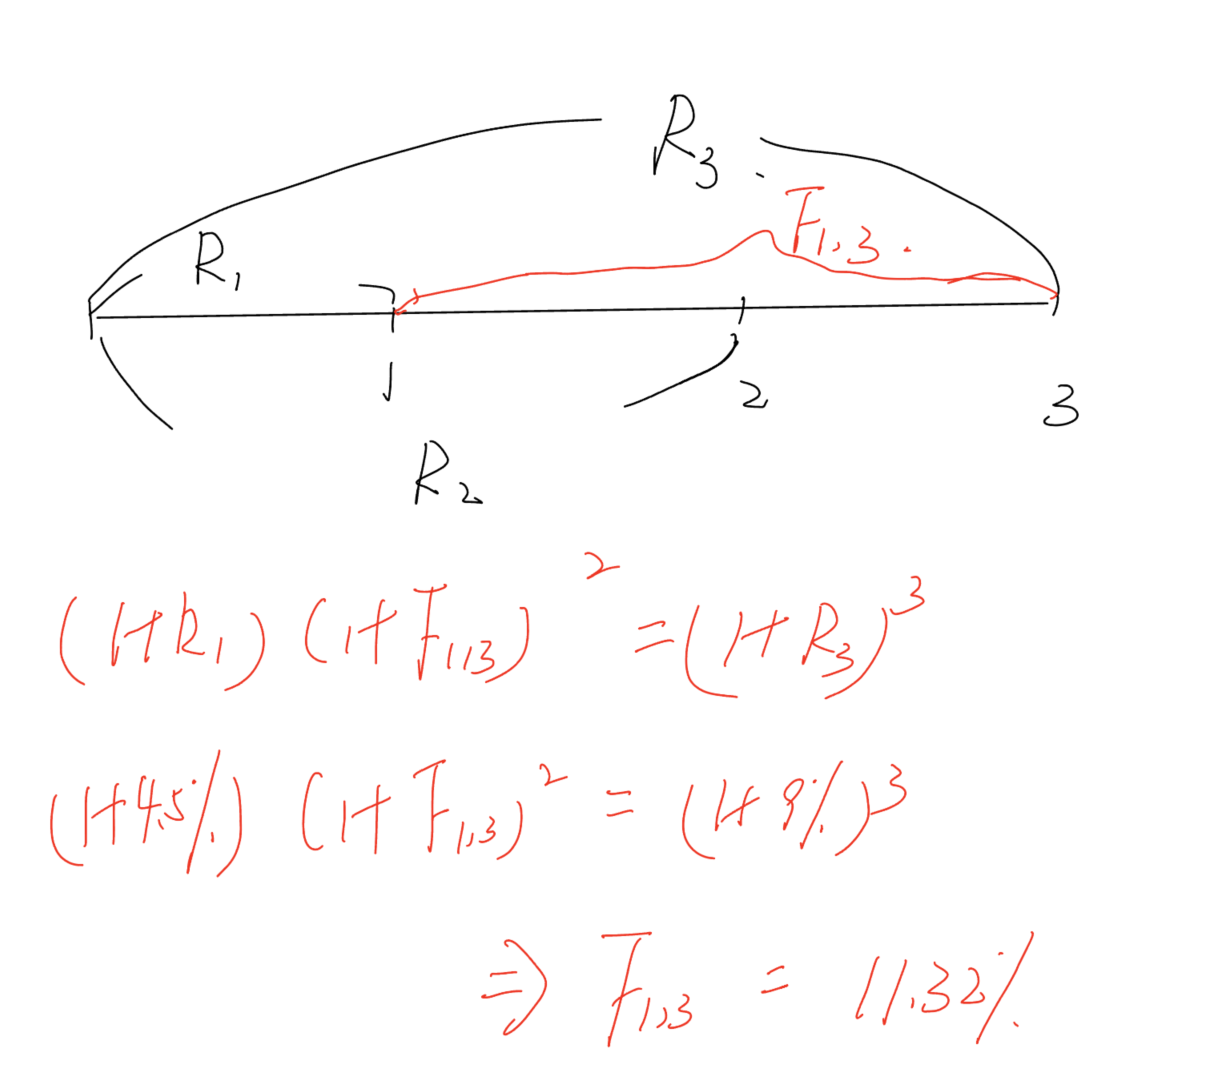 R₃.
F₁,₃.
R₁
1 2 3
R₂
(1+R₁) (1+F₁,₃)² = (1+R₃)³
(1+4.5%) (1+F₁,₃)² = (1+9%)³
⇒ F₁,₃ = 11.32%